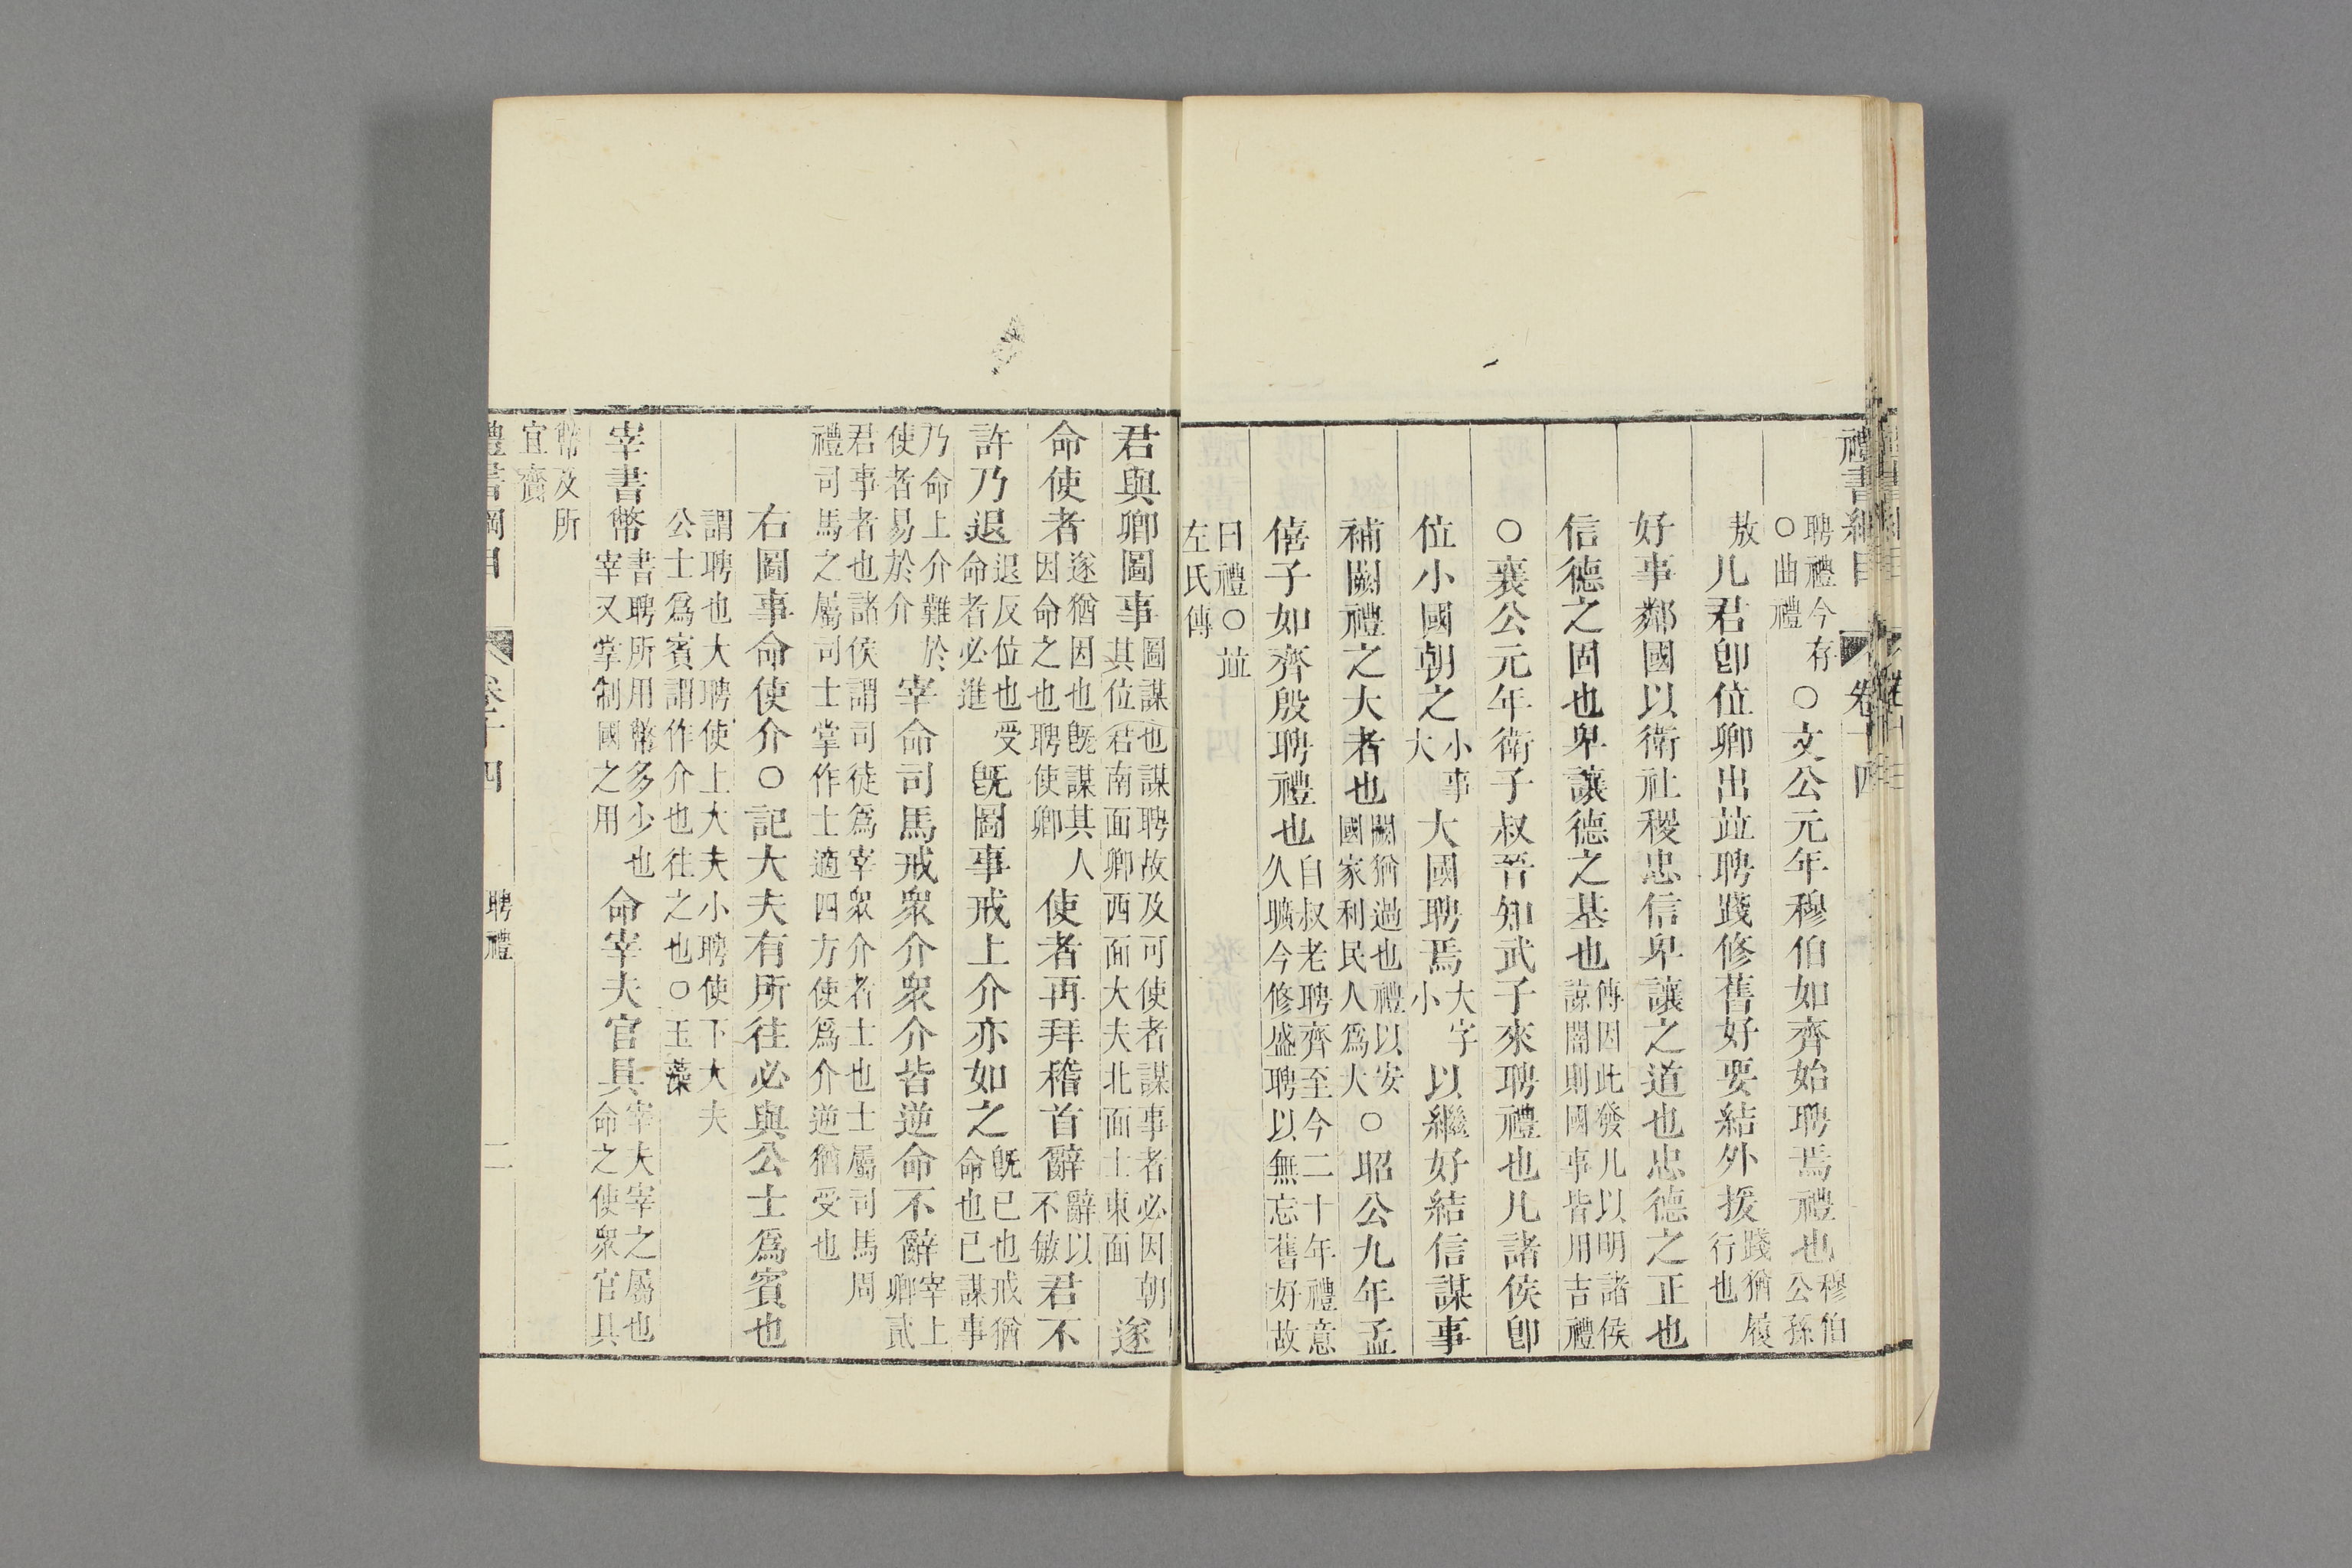 禮書綱目 卷十四
聘禮今存○曲禮○文公元年穆伯如齊始聘焉禮也穆伯公孫
敖凡君卽位卿出竝聘踐修舊好要結外援踐猶履行也
好事鄰國以衛社稷忠信卑讓之道也忠德之正也
信德之固也卑讓德之基也傳因此發凡以明諸侯諒闇則國事皆用吉禮
○襄公元年衛子叔晉知武子來聘禮也凡諸侯卽
位小國朝之小事大大國聘焉大字小以繼好結信謀事
補闕禮之大者也闕猶過也禮以安國家利民人爲大○昭公九年孟
僖子如齊殷聘禮也自叔老聘齊至今二十年禮意久曠今修盛聘以無忘舊好故
曰禮○竝左氏傳
君與卿圖事圖謀也謀聘故及可使者謀事者必因朝其位君南面卿西面大夫北面士東面遂
命使者遂猶因也旣謀其人因命之也聘使卿使者再拜稽首辭辭以不敏君不
許乃退退反位也受命者必進旣圖事戒上介亦如之旣已也戒猶命也已謀事
乃命上介難於使者易於介宰命司馬戒衆介衆介皆逆命不辭宰上卿貳
君事者也諸侯謂司徒爲宰衆介者士也士屬司馬周禮司馬之屬司士掌作士適四方使爲介逆猶受也
右圖事命使介○記大夫有所往必與公士爲賓也
謂聘也大聘使上大夫小聘使下大夫公士爲賓謂作介也往之也○玉藻
宰書幣書聘所用幣多少也宰又掌制國之用命宰夫官具宰夫宰之屬也命之使衆官具
幣及所宜齎
禮書綱目 卷十四 聘禮 二